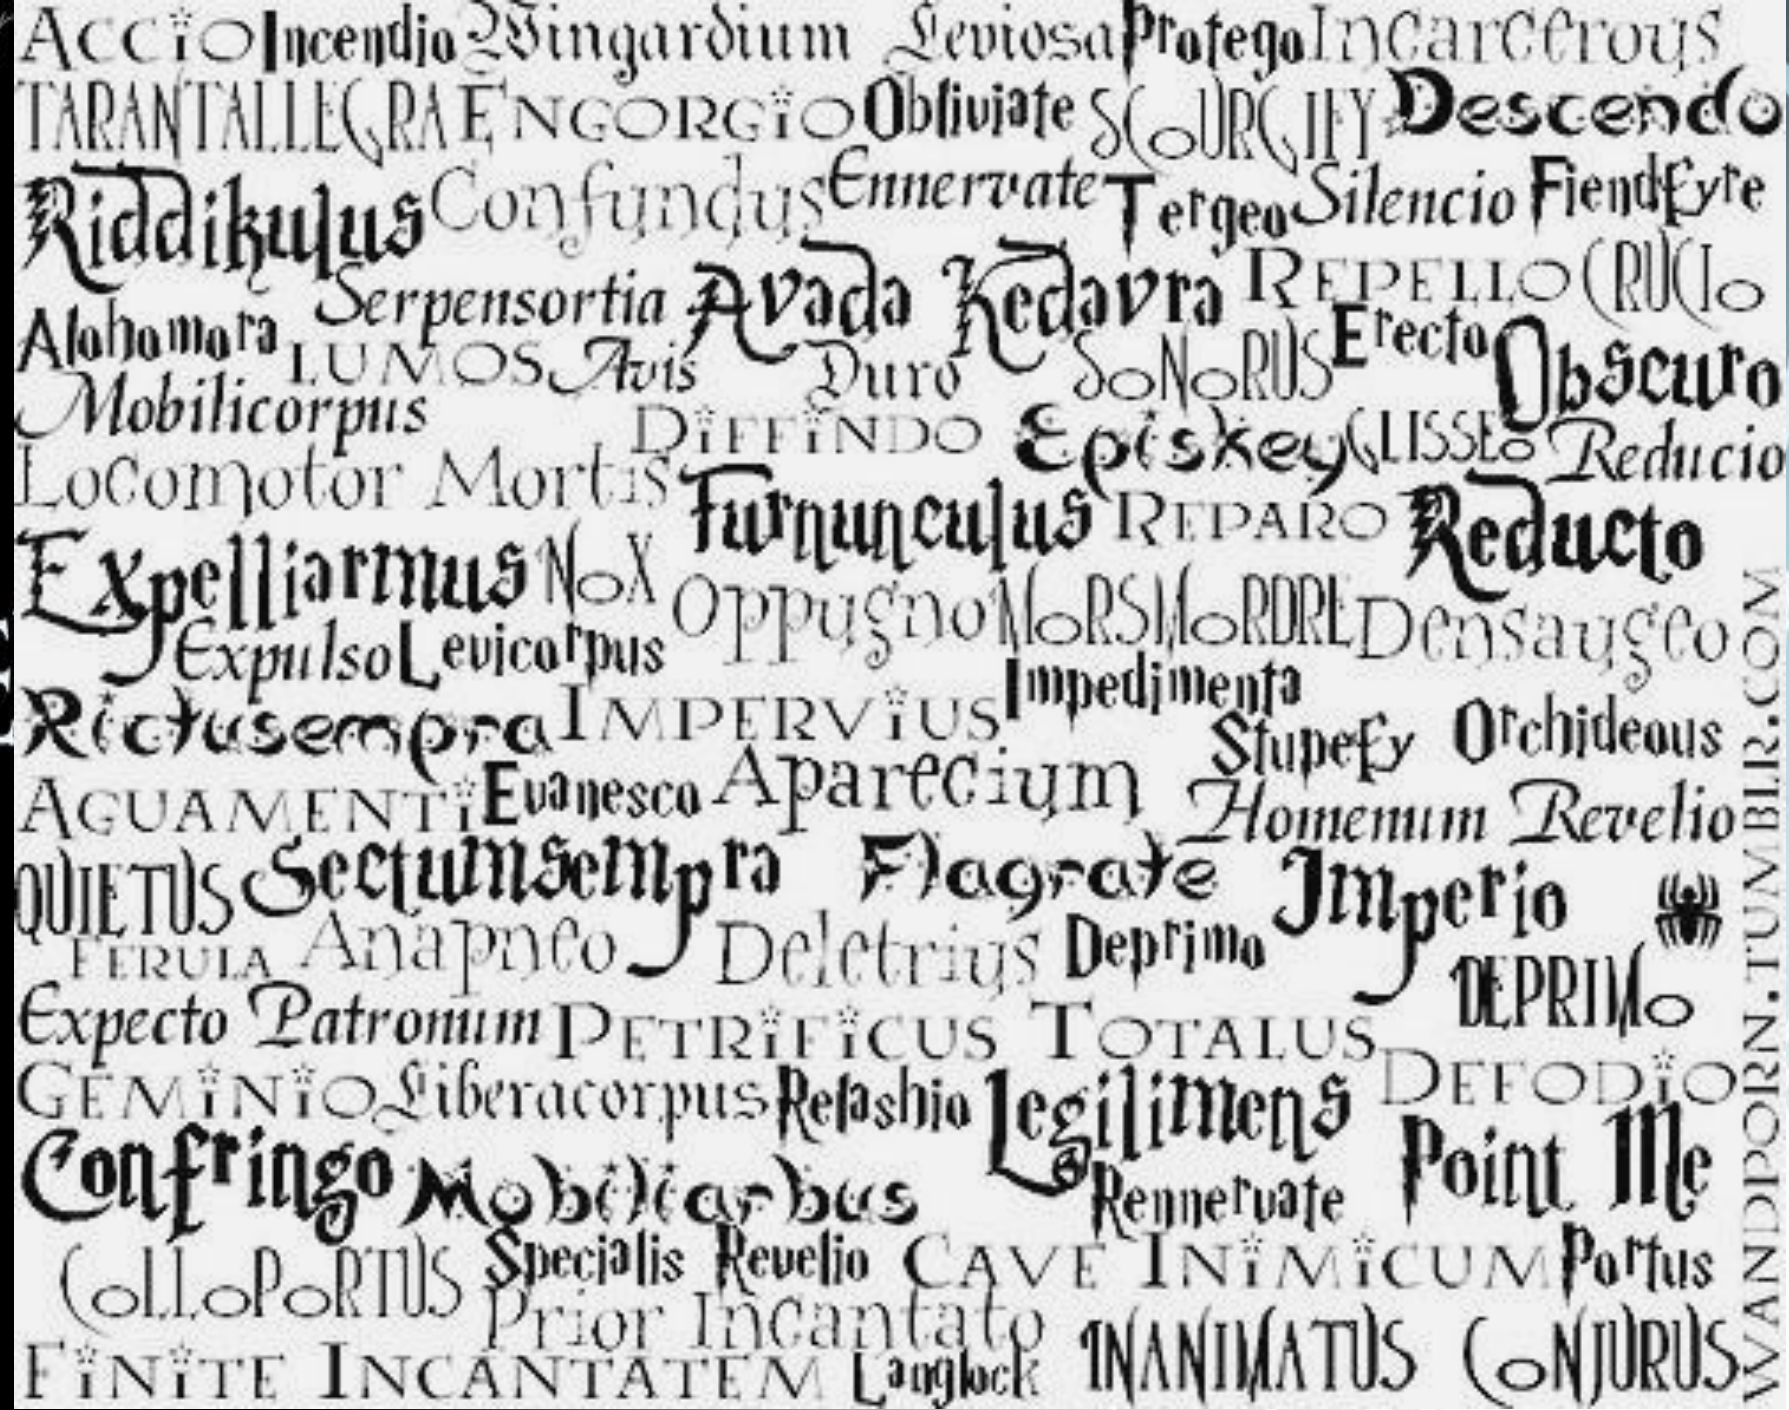 Accio Incendio Wingardium Leviosa Protego Incarcerous
TARANTALLEGRA ENGORGiO Obliviate SCoURGIFY Descendo
Riddikulus Confundus Ennervate Tergeo Silencio Fiendfyre
Serpensortia Avada Kedavra REPELLO CRUCIo
Alohomora LUMOS Avis Duro SoNoRUS Erecto Obscuro
Mobilicorpus DiFFiNDO Episkey GLISSEo Reducio
Locomotor Mortis Furnunculus REPARO Reducto
Expelliarmus NoX Oppugno MoRSMoRDRE Densaugeo
Expulso Levicorpus Impedimenta
Rictusempra IMPERViUS Stupefy Orchideous
AGUAMENTi Evanesco Aparecium Homenum Revelio
QUIETUS Sectumsempra Flagrate Imperio
FERULA Anapneo Deletrius Deprimo DEPRIMo
Expecto Patronum PETRiFiCUS TOTALUS
GEMiNiO Liberacorpus Relashio Legilimens DEFODiO
Confringo Mobiliarbus Rennervate Point Me
CoLLoPoRTUS Specialis Revelio CAVE INiMiCUM Portus
Prior Incantato
FiNiTE INCANTATEM Langlock INANIMATUS CoNJURUS
WANDPORN.TUMBLR.COM